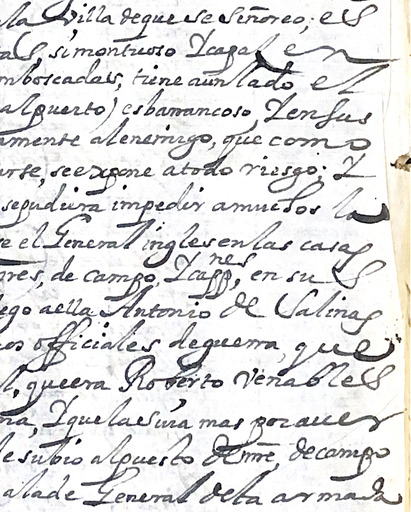 la Villa de que se Señoreo; es
si montuoso y capaz en
mboscadas, tiene a un lado el
al puerto) es barrancoso, y en sus
amente al enemigo, que como
arse, se expone a todo riesgo; y
se pudiera impedir a muchos la
e el General ingles en las casas
res, de campo, y capp.nes, en su
ego a ella Antonio de Salinas
os officiales de guerra, que
l, que era Roberto Venables
na, y que la suia mas por auer
le subio al puesto de mre, de campo
a la de General de la armada